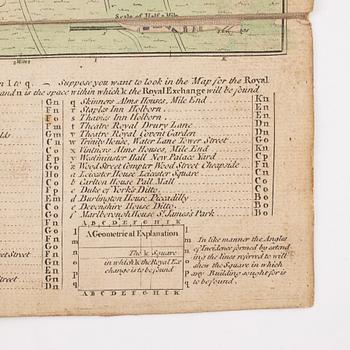 Scale of Half a Mile
n I to q. — Suppose you want to look in the Map for the Royal
and n is the space within which k the Royal Exchange will be found
Gn q Skinners Alms Houses, Mile End Kn
Fn r Staples Inn Holborn En
Fo s Thavies Inn Holborn En
Fm t Theatre Royal Drury Lane Dn
Gm u Theatre Royal Covent Garden Dn
Cn w Trinity House, Water Lane Tower Street Go
Co x Vintners Alms Houses, Mile End Kn
Fp y Westminster Hall New Palace Yard Cp
Fn z Wood Street Compter Wood Street Cheapside Fn
Ho a Leicester House Leicester Square Cn
Do b Carlton House Pall Mall Co
Fp c Duke of York's Ditto Co
Em d Burlington House Piccadilly Bo
Co e Devonshire House Ditto Bo
f Marlborough House St. James's Park Bo
A B C D E F G H I K
A Geometrical Explanation
The k Square
in which k the Royal Ex
change is to be found
A B C D E F G H I K
In like manner the Angles
of Incidence formed by extend
ing the lines referred to will
shew the Square in which
any Building sought for is
to be found.